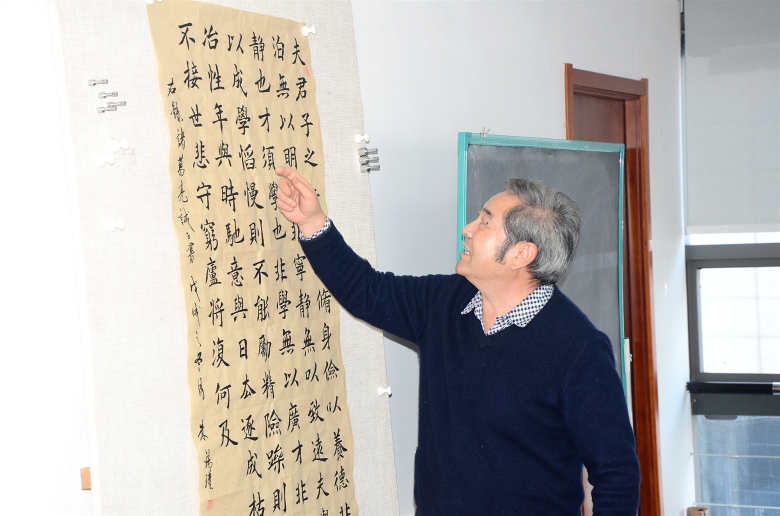 夫君子之脩身儉以養德非
泊無以明非寧靜無以致遠夫
靜也才須學也非學無以廣才非
以成學慆慢則不能勵精險躁則
冶性年與時馳意與日去遂成枯
不接世悲守窮廬將復何及
右錄諸葛亮誡子書